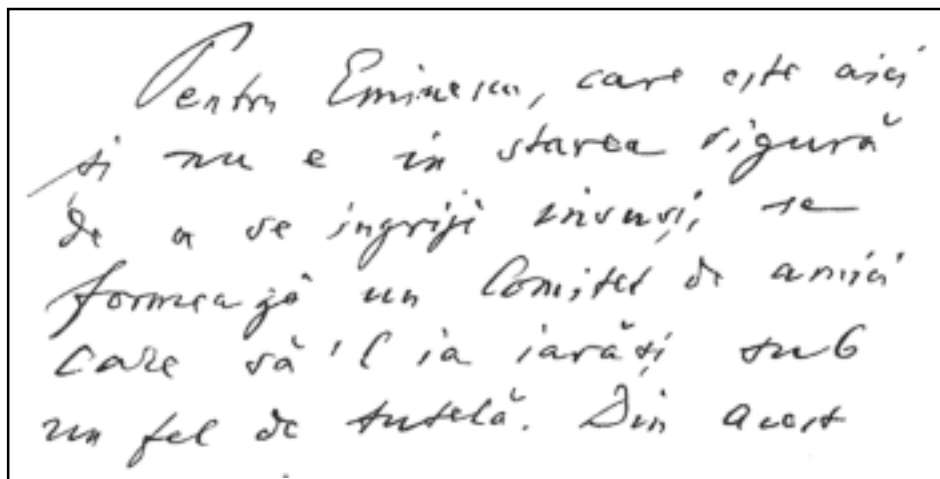 Pentru Eminescu, care este aici
și nu e in starea sigură
de a se ingriji insuși, se
formează un Comitet de amici
care să 'l ia iarăși sub
un fel de tutelă. Din acest